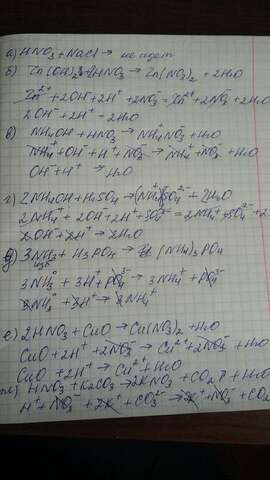 а) HNO3 + NaCl → не идет
б) Zn(OH)2 + 2HNO3 → Zn(NO3)2 + 2H2O
Zn²⁺ + 2OH⁻ + 2H⁺ + 2NO3⁻ = Zn²⁺ + 2NO3⁻ + 2H2O
2OH⁻ + 2H⁺ → 2H2O
в) NH4OH + HNO3 → NH4NO3 + H2O
NH4⁺ + OH⁻ + H⁺ + NO3⁻ → NH4⁺ + NO3⁻ + H2O
OH⁻ + H⁺ → H2O
г) 2NH4OH + H2SO4 → (NH4)2SO4 + 2H2O
2NH4⁺ + 2OH⁻ + 2H⁺ + SO4²⁻ = 2NH4⁺ + SO4²⁻ + 2
2OH⁻ + 2H⁺ → 2H2O
д) 3NH3 + H3PO4 → (NH4)3PO4
3NH3⁰ + 3H⁺ + PO4³⁻ → 3NH4⁺ + PO4³⁻
3NH3⁰ + 3H⁺ → 3NH4⁺
е) 2HNO3 + CuO → Cu(NO3)2 + H2O
CuO + 2H⁺ + 2NO3⁻ → Cu²⁺ + 2NO3⁻ + H2O
CuO + 2H⁺ → Cu²⁺ + H2O
ж) HNO3 + K2CO3 → 2KNO3 + CO2↑ + H2O
H⁺ + NO3⁻ + 2K⁺ + CO3²⁻ → 2K⁺ + NO3⁻ + CO2